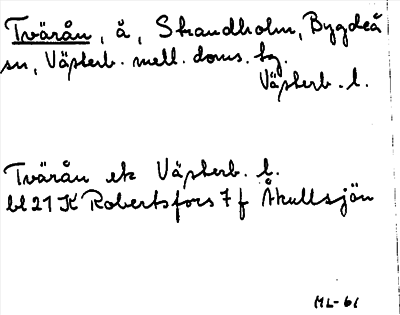 Tvärån, å, Skandholm, Bygdeå
sn, Västerb. mell. doms. tg.
Västerb. l.
Tvärån ek Västerb. l.
bl 21 K Robertsfors 7 f Åkullsjön
ML-61